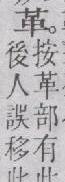 革。
按革部有此
後人誤移此